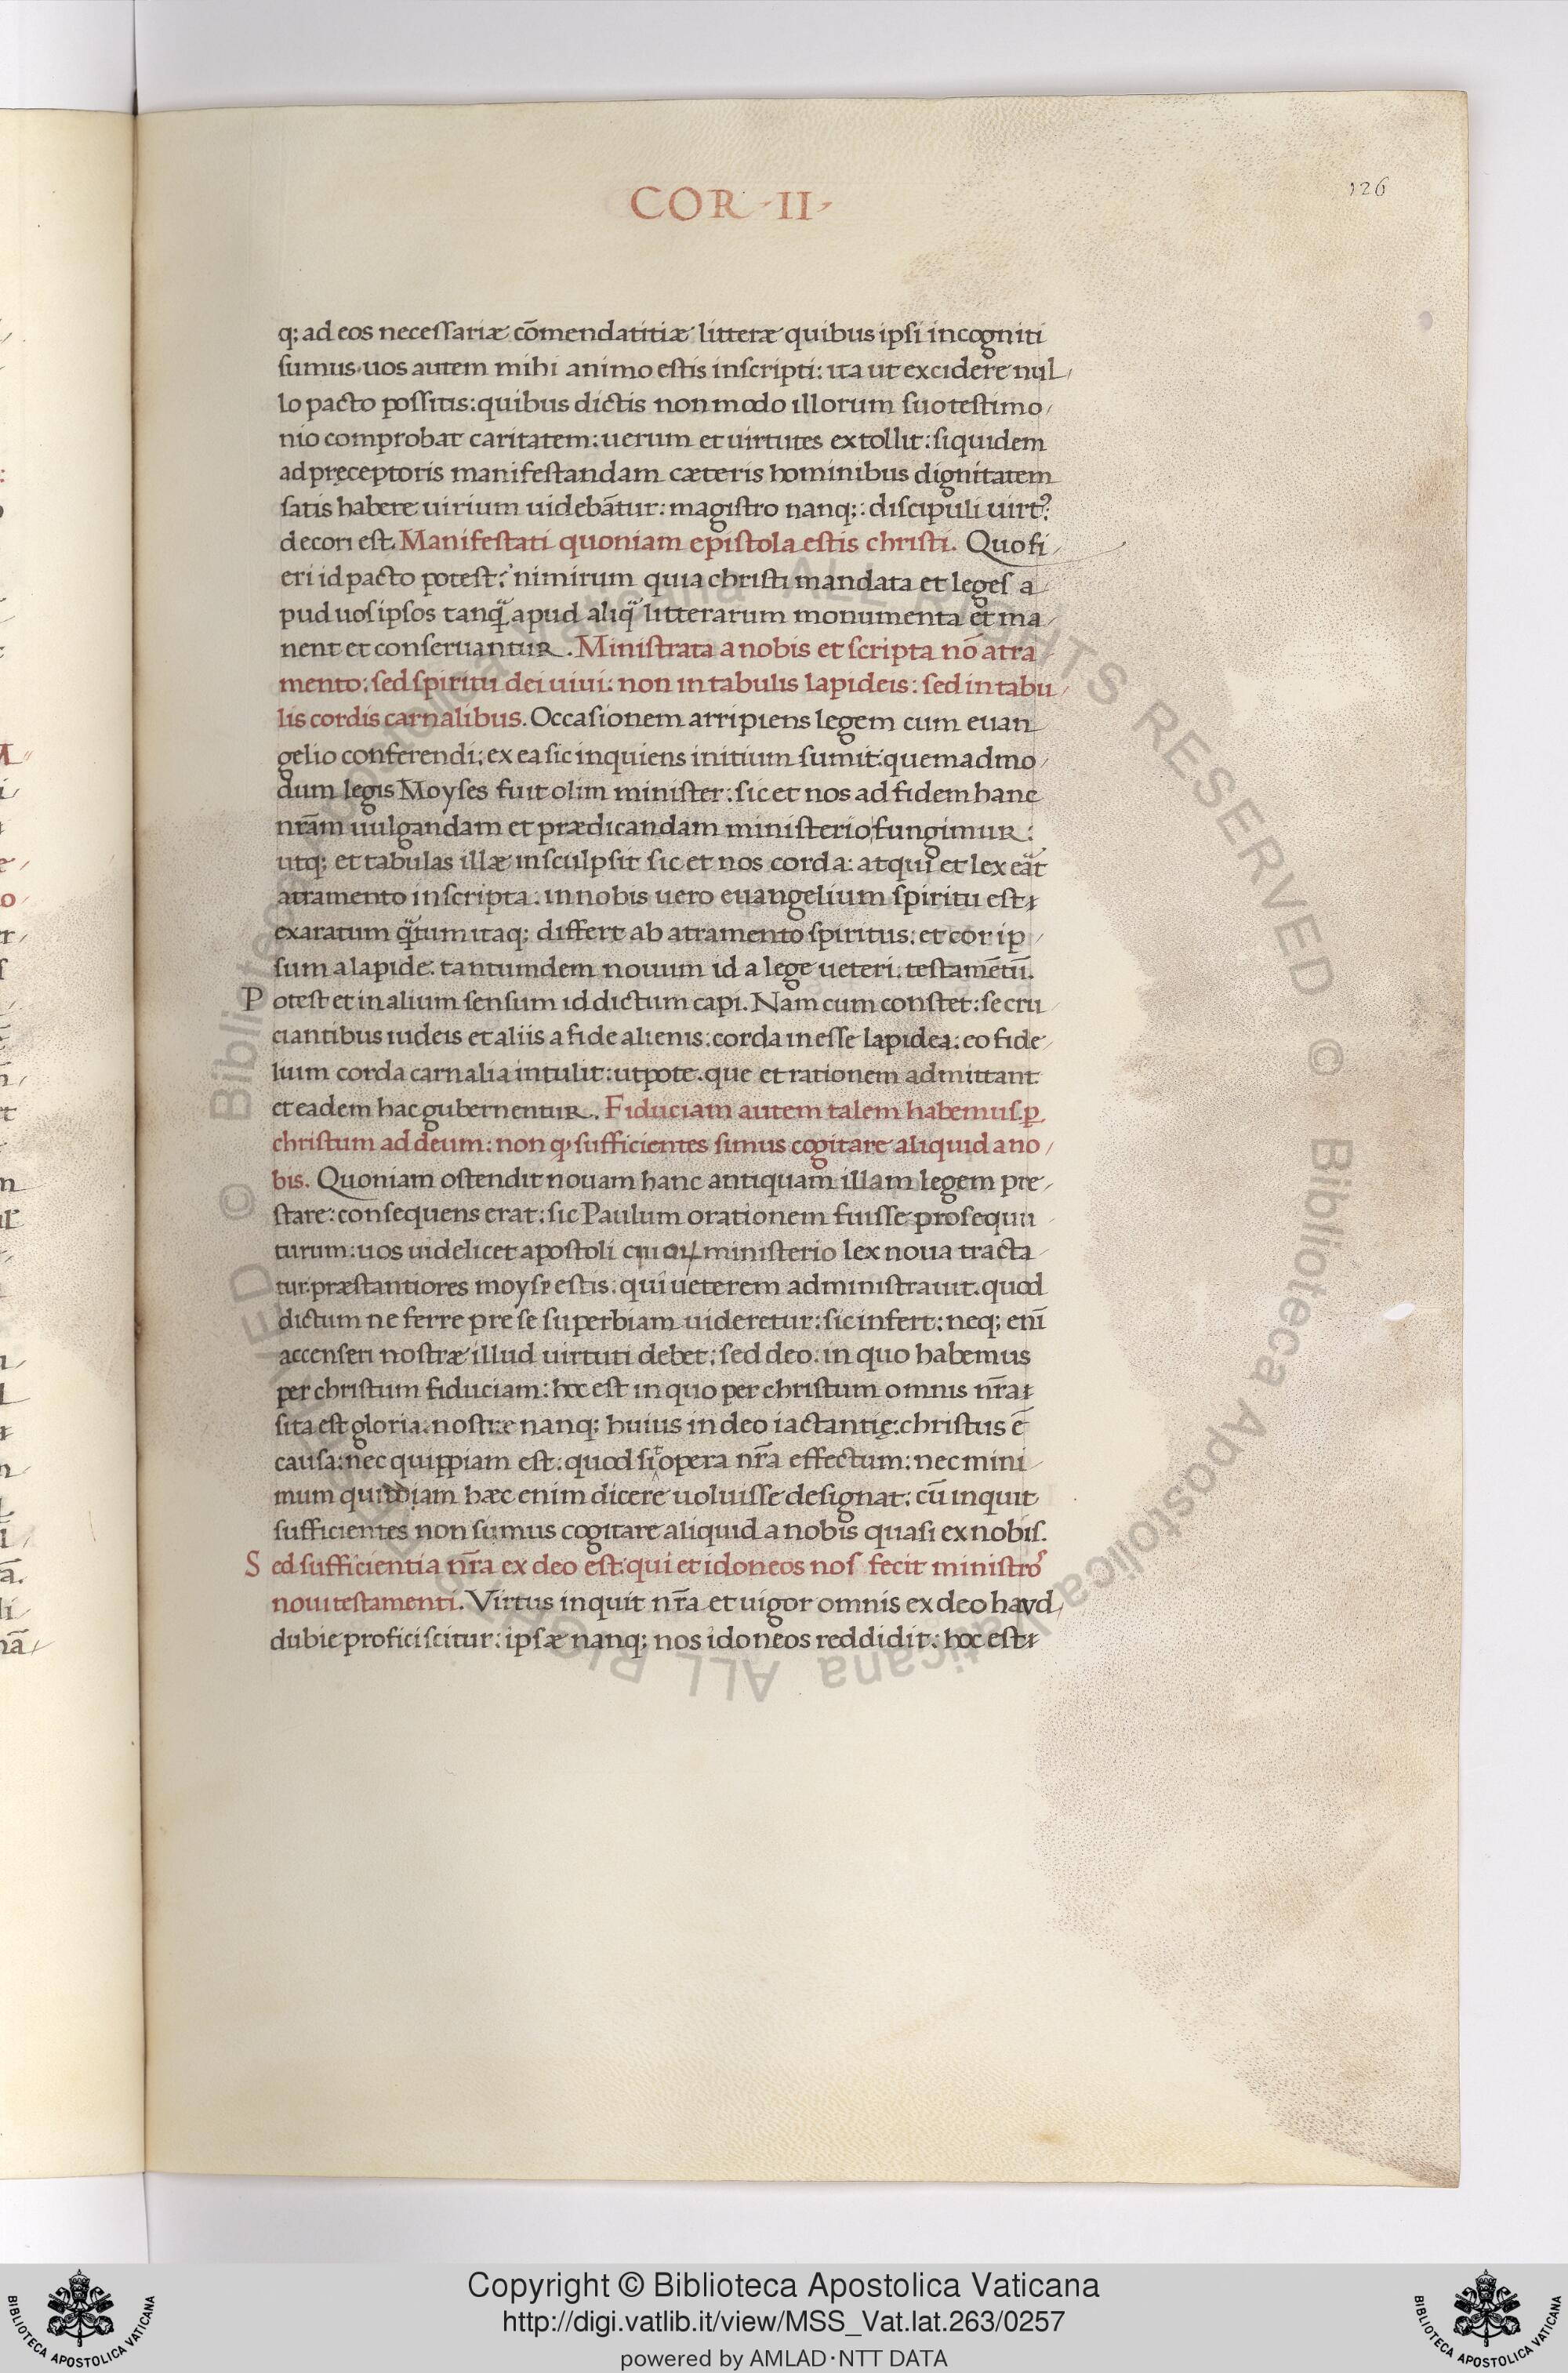 COR · II ·
126
q; ad eos necessariæ cōmendatitiæ litteræ quibus ipsi incogniti
sumus. uos autem mihi animo estis inscripti: ita ut excidere nul/
lo pacto possitis: quibus dictis non modo illorum suo testimo/
nio comprobat caritatem: uerum et uirtutes extollit: siquidem
ad pręceptoris manifestandam cæteris hominibus dignitatem
satis habere uirium uidebāt᷑ur: magistro nanq;: discipuli uirtꝰ
decori est. Manifestati quoniam epistola estis christi. Quo fi/
eri id pacto potest? nimirum quia christi mandata et leges a/
pud uos ipsos tanq̃ apud aliq̃ litterarum monumenta et ma/
nent et conseruantur. Ministrata a nobis et scripta nō atra/
mento: sed spiritu dei uiui: non in tabulis lapideis: sed in tabu/
lis cordis carnalibus. Occasionem arripiens legem cum euan
gelio conferendi: ex ea sic inquiens initium sumit: quemadmo/
dum legis Moyses fuit olim minister: sic et nos ad fidem hanc
nr̄am uulgandam et prædicandam ministerio fungimur:
utq; et tabulas illæ insculpsit sic et nos corda: atqui et lex eāt
atramento inscripta: in nobis uero euangelium spiritu est
exaratum q̃tum itaq; differt ab atramento spiritus: et cor ip/
sum a lapide: tantumdem nouum id a lege ueteri. testamētū.
Potest et in alium sensum id dictum capi. Nam cum constet: se cru
ciantibus iudeis et aliis a fide alienis: corda inesse lapidea: eo fide/
lium corda carnalia intulit: utpote. que et rationem admittant
et eadem hac gubernentur. Fiduciam autem talem habemus ꝑ
christum ad deum: non ꝙ sufficientes simus cogitare aliquid a no/
bis. Quoniam ostendit nouam hanc antiquam illam legem pre/
stare: consequens erat: sic Paulum orationem fuisse prosequu/
turum: uos uidelicet apostoli ministerio lex noua tracta/
tur: præstantiores moyse estis. qui ueterem administrauit. quod
dictum ne ferre pre se superbiam uideretur: sic infert: neq; enī
accenseri nostræ illud uirtuti debet: sed deo: in quo habemus
per christum fiduciam: hoc est in quo per christum omnis nr̄a
sita est gloria: nostræ nanq; huius in deo iactantię: christus ē
causa: nec quippiam est: quod sit opera nr̄a effectum: nec mini/
mum quiddiam hæc enim dicere uoluisse designat: cū inquit
sufficientes non sumus cogitare aliquid a nobis quasi ex nobis.
Sed sufficientia nr̄a ex deo est: qui et idoneos nos fecit ministros
noui testamenti. Virtus inquit nr̄a et uigor omnis ex deo haud/
dubie proficiscitur: ipsæ nanq; nos idoneos reddidit: hoc est
Copyright © Biblioteca Apostolica Vaticana
http://digi.vatlib.it/view/MSS_Vat.lat.263/0257
powered by AMLAD·NTT DATA